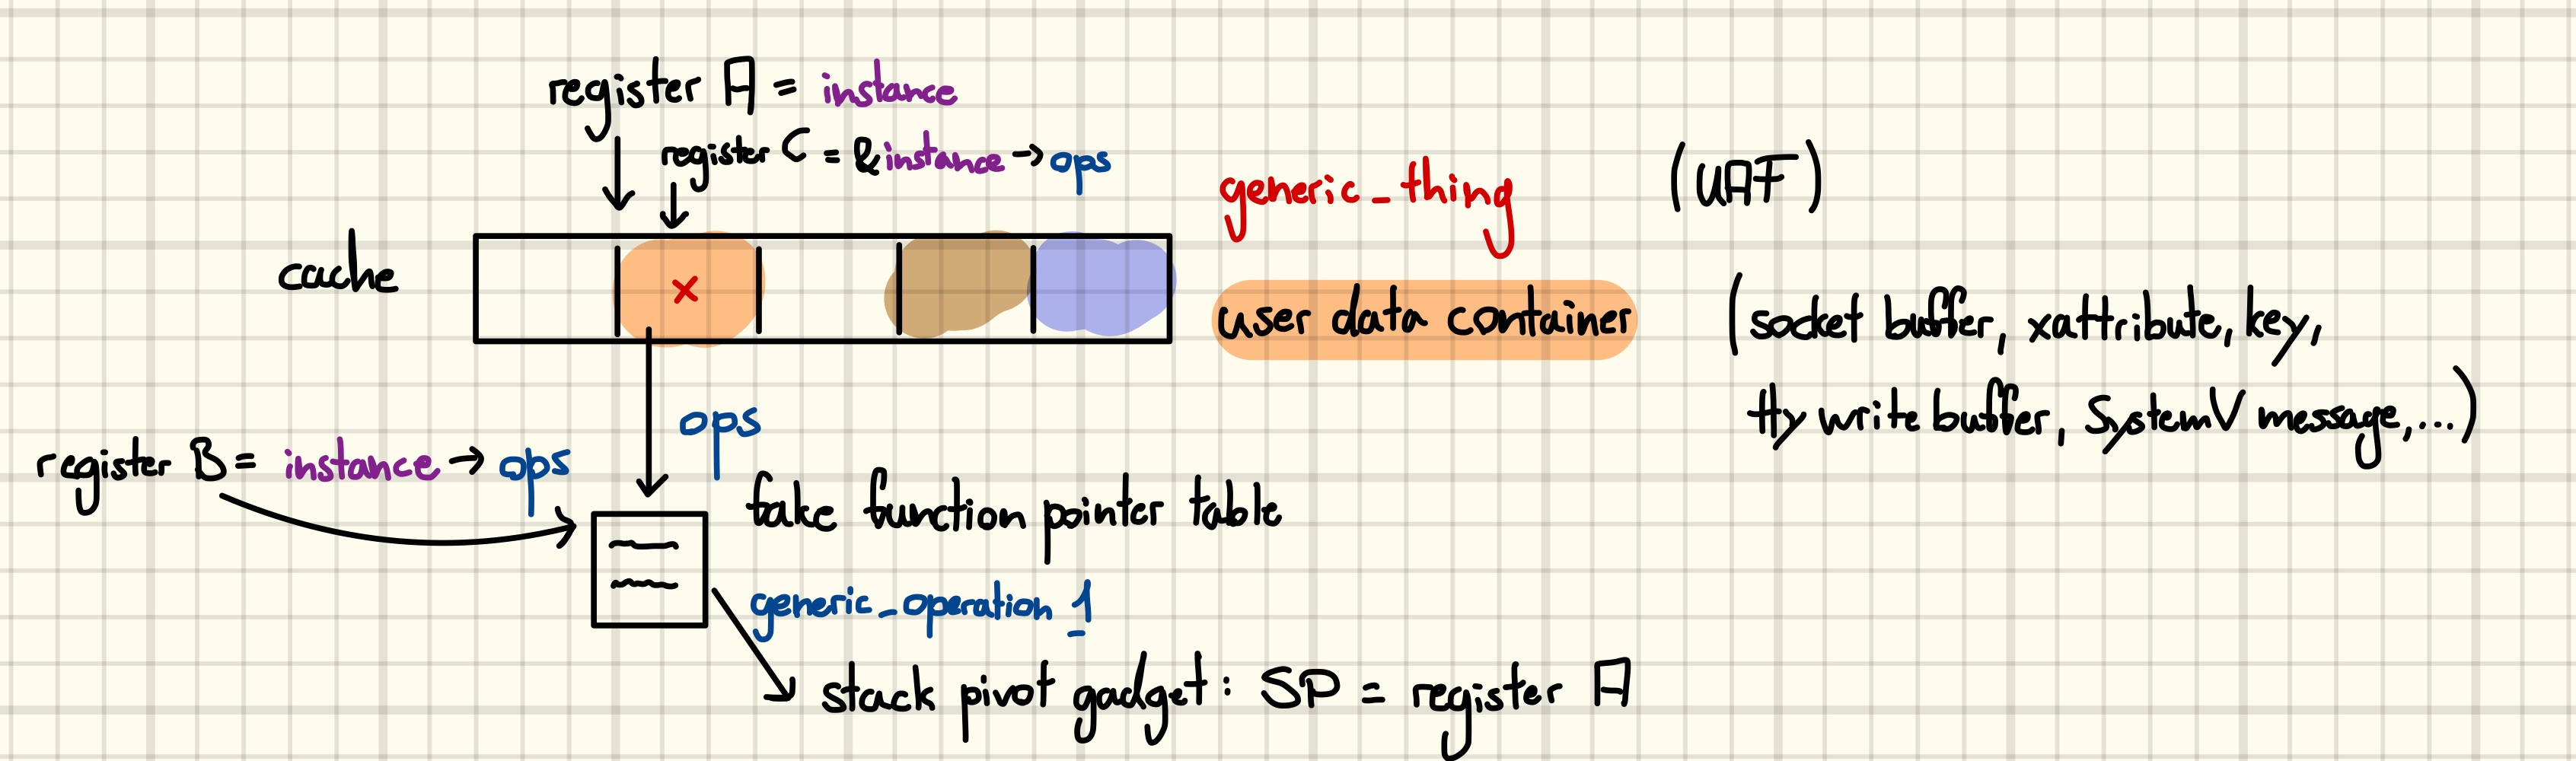 register A = instance
register C = &instance → ops
generic_thing (UAF)
cache
×
user data container (socket buffer, xattribute, key,
tty write buffer, SystemV message,...)
ops
register B = instance → ops
fake function pointer table
generic_operation_1
stack pivot gadget: SP = register A